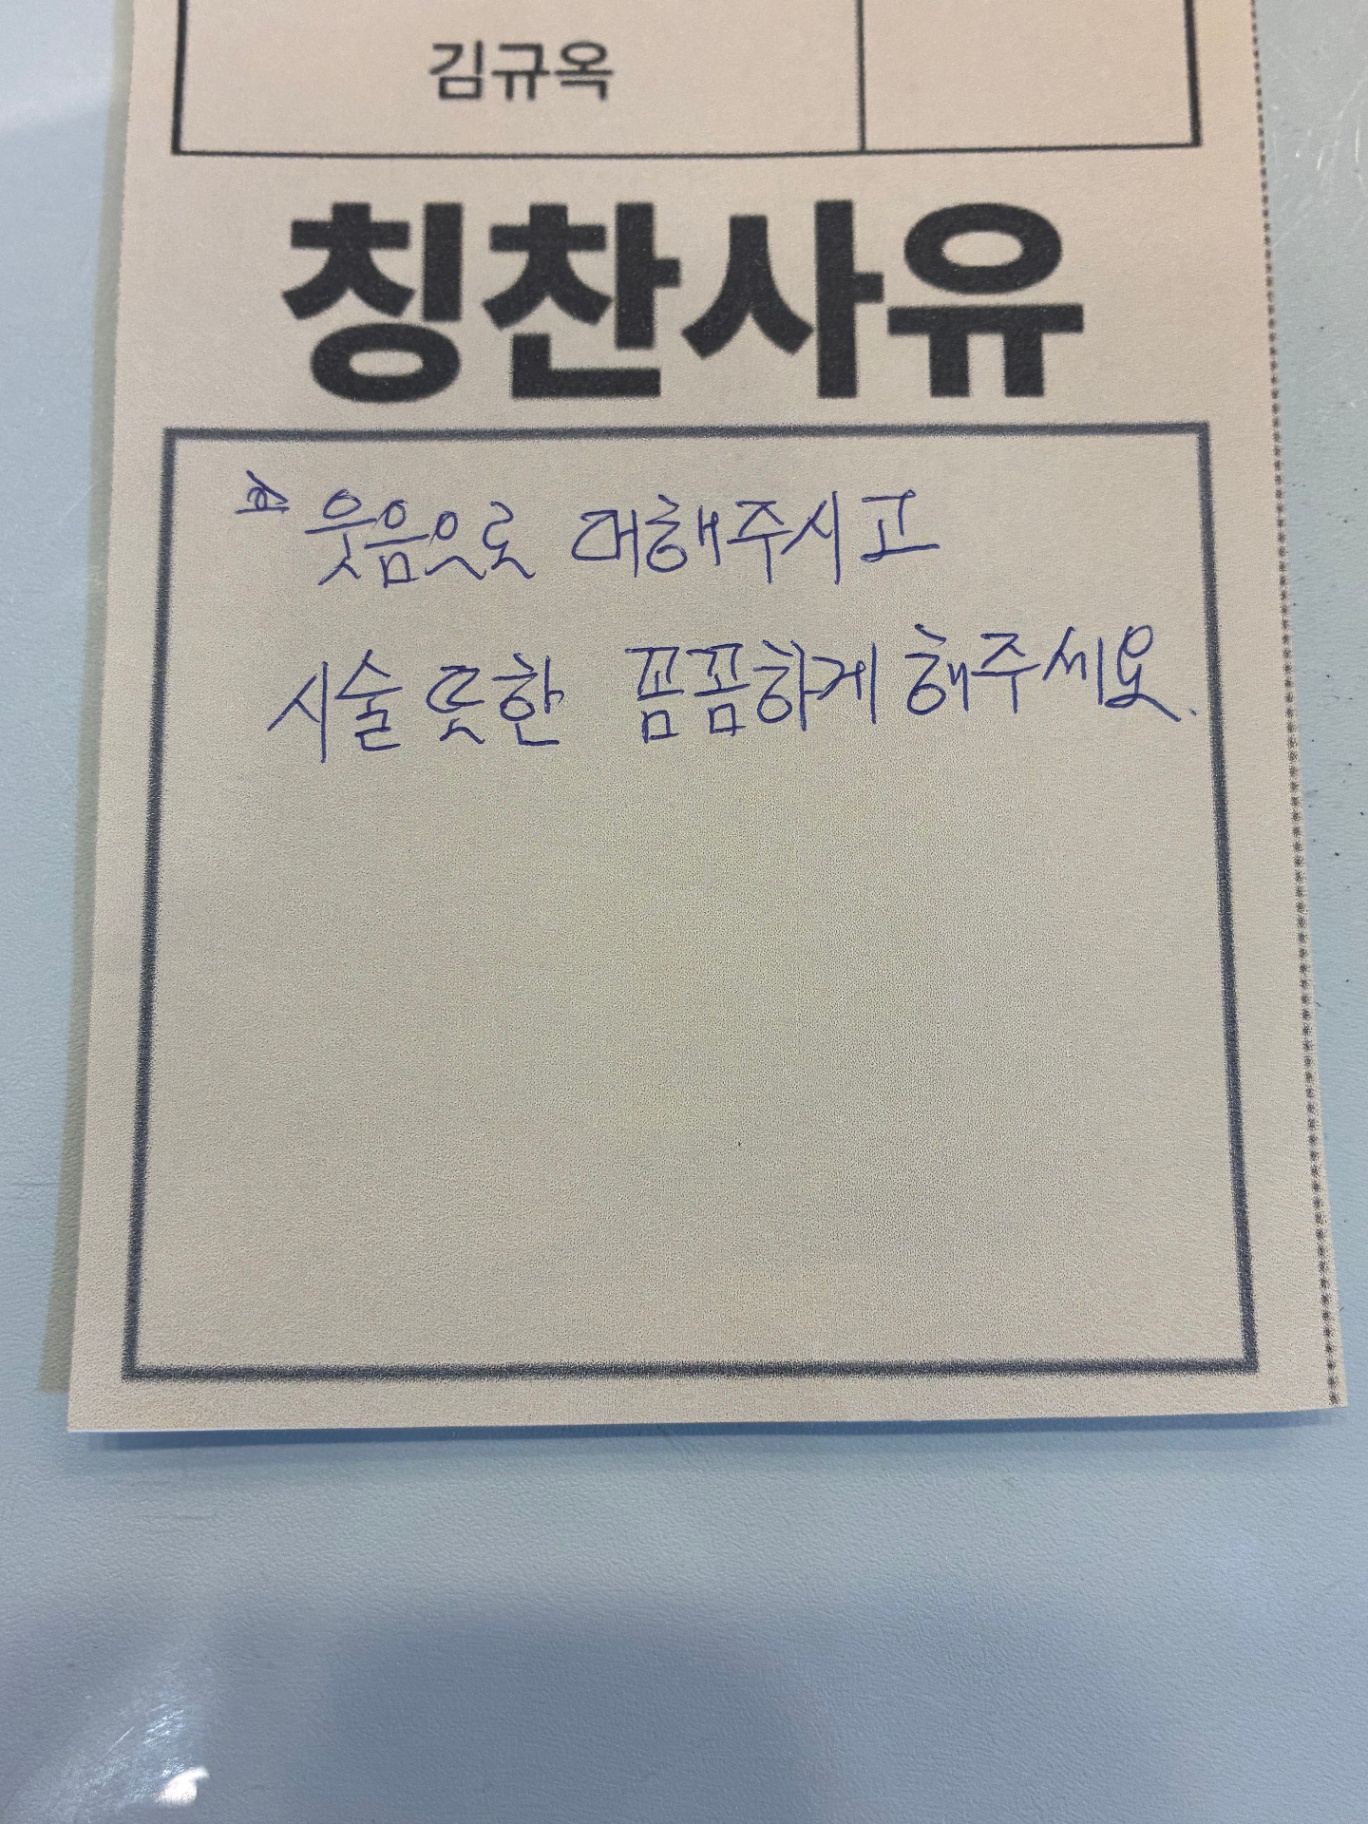 김규옥
칭찬사유
웃음으로 대해주시고
시술 또한 꼼꼼하게 해주세요.